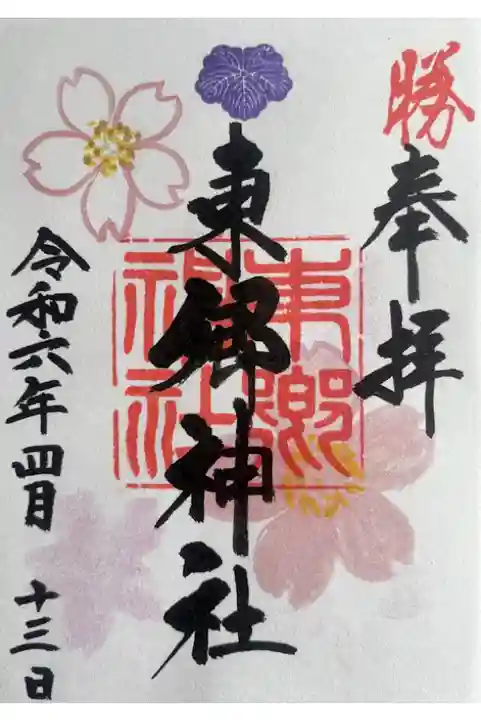 勝
奉拝
東郷神社
東郷神社
令和六年四月十三日